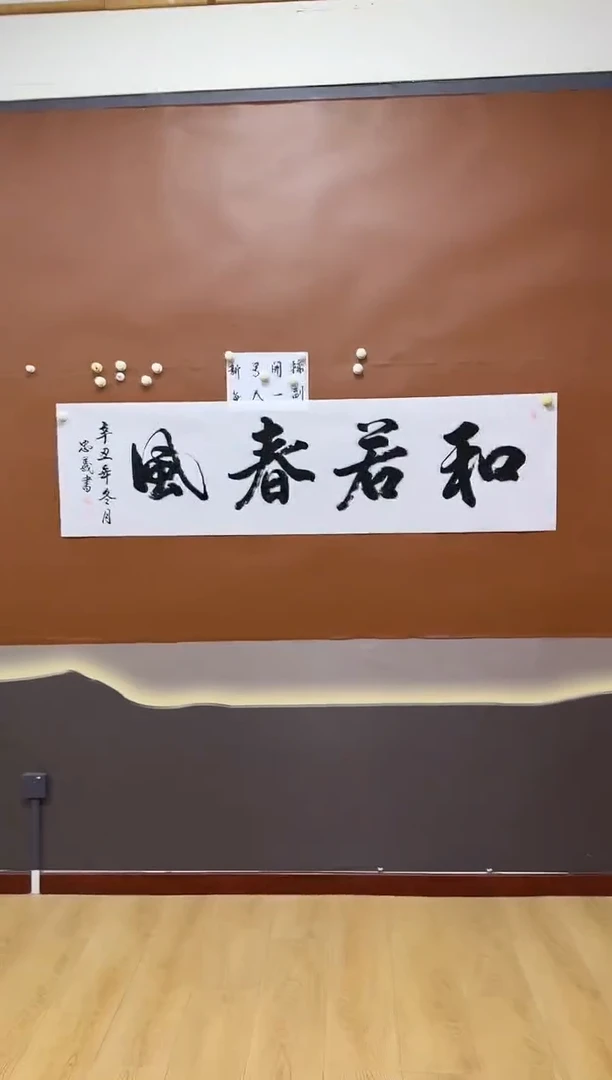 和若春風
辛丑年冬月
忠義書